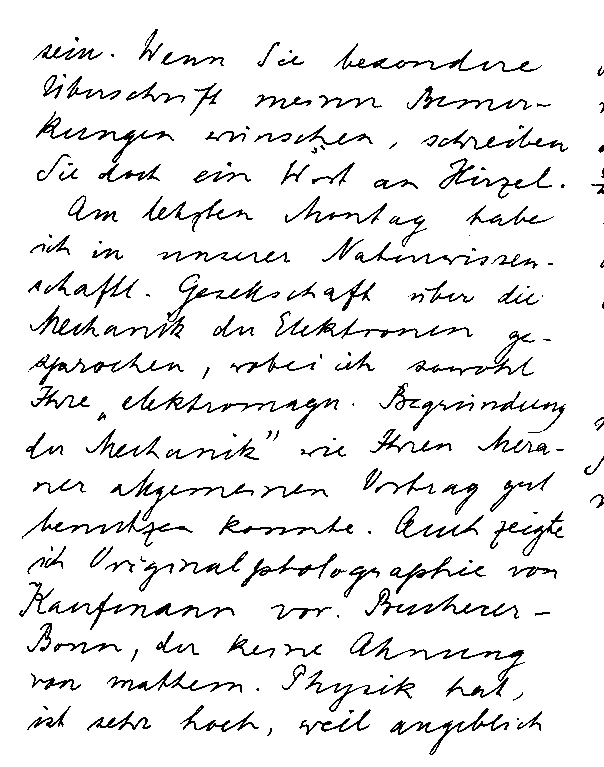 sein. Wenn Sie besondere
Überschrift meiner Bemer-
kungen wünschen, schreiben
Sie doch ein Wort an Hirzel.
Am letzten Montag habe
ich in unserer Naturwissen-
schaftl. Gesellschaft über die
Mechanik der Elektronen ge-
sprochen, wobei ich sowohl
Ihre „elektromagn. Begründung
der Mechanik" wie Ihren Mera-
ner allgemeinen Vortrag gut
benutzen konnte. Auch zeigte
ich Originalphotographie von
Kaufmann vor. Bucherer-
Bonn, der keine Ahnung
von mathem. Physik hat,
ist sehr hoch, weil angeblich